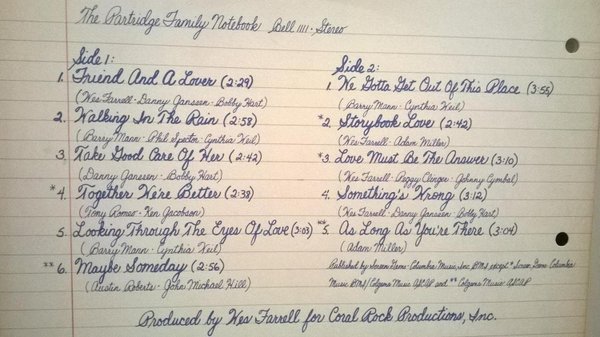 The Partridge Family Notebook Bell 1111 · Stereo
Side 1:
1. Friend And A Lover (2:29)
(Wes Farrell · Danny Janssen · Bobby Hart)
2. Walking In The Rain (2:58)
(Barry Mann · Phil Spector · Cynthia Weil)
3. Take Good Care Of Her (2:42)
(Danny Janssen · Bobby Hart)
*4. Together We're Better (2:38)
(Tony Romeo · Ken Jacobson)
5. Looking Through The Eyes Of Love (3:03)
(Barry Mann · Cynthia Weil)
**6. Maybe Someday (2:56)
(Austin Roberts · John Michael Hill)
Side 2:
1. We Gotta Get Out Of This Place (3:55)
(Barry Mann · Cynthia Weil)
*2. Storybook Love (2:42)
(Wes Farrell · Adam Miller)
*3. Love Must Be The Answer (3:10)
(Wes Farrell · Peggy Clinger · Johnny Cymbal)
4. Something's Wrong (3:12)
(Wes Farrell · Danny Janssen · Bobby Hart)
**5. As Long As You're There (3:04)
(Adam Miller)
Published by Screen Gems-Columbia Music, Inc. BMI except * Screen Gems-Columbia
Music BMI/Colgems Music ASCAP and ** Colgems Music ASCAP
Produced by Wes Farrell for Coral Rock Productions, Inc.